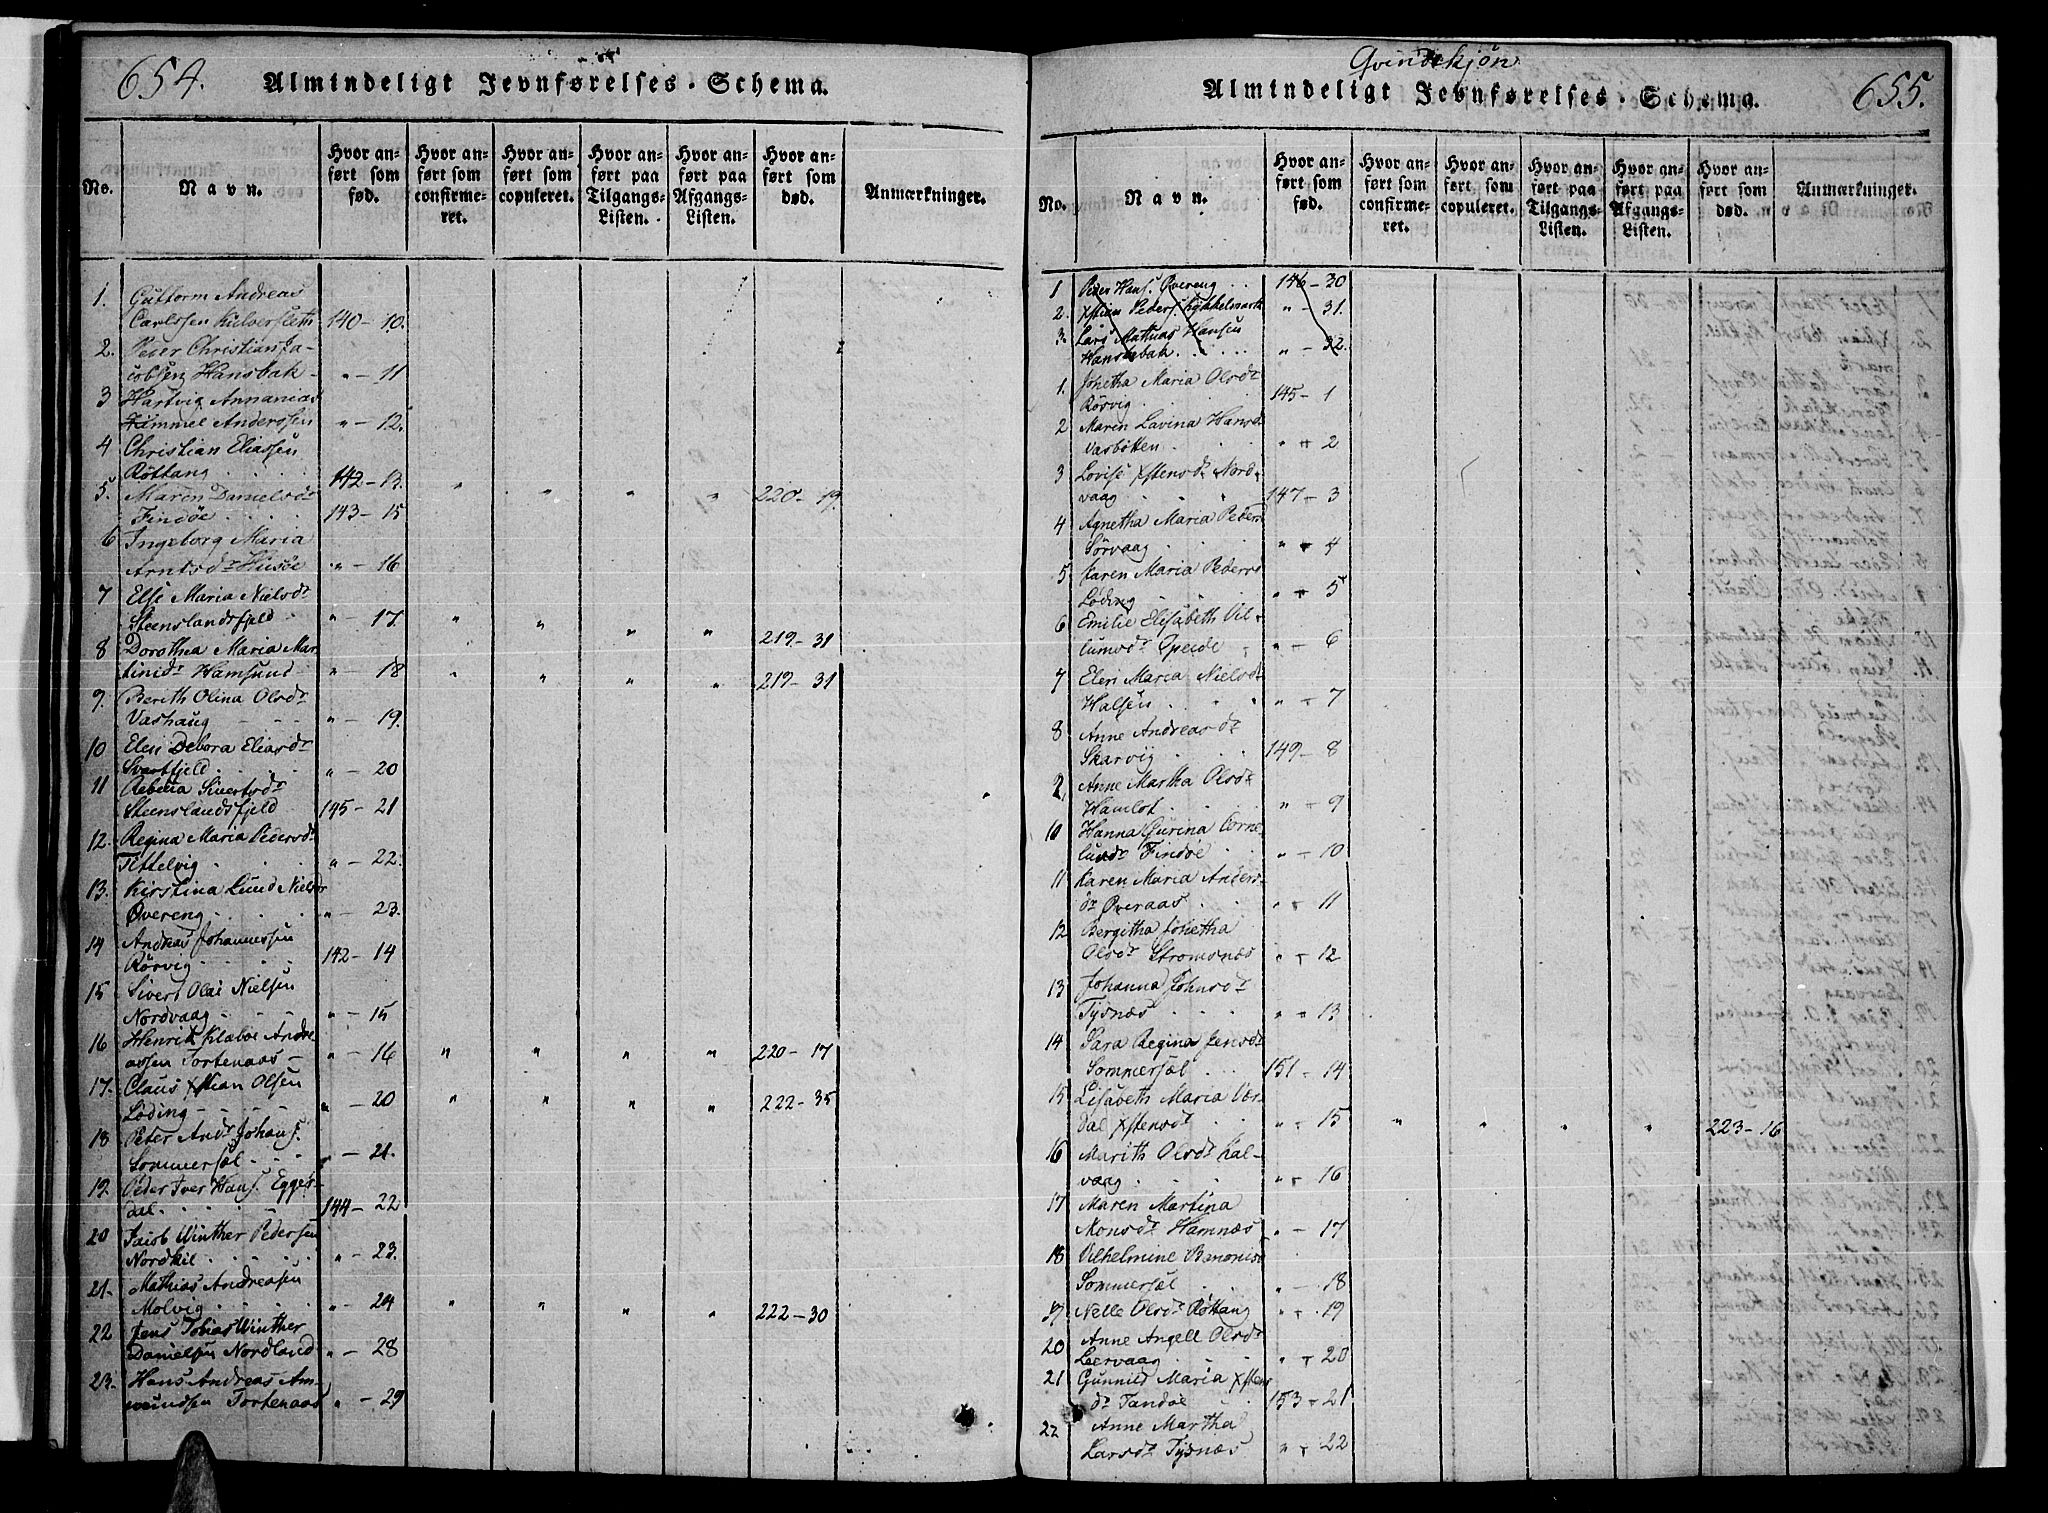 654.
Almindeligt Jevnførelses-Schema.
No.
Navn.
Hvor anført som fød.
Hvor anført som confirmeret.
Hvor anført som copuleret.
Hvor anført paa Tilgangs-Listen.
Hvor anført paa Afgangs-Listen.
Hvor anført som død.
Anmærkninger.
1. Guttorm Andreas
Carlssen 140-10.
2. Peder Christian Ja-
cobsen Hansbak - " - 11
3 Hartvig Annanias
Hammel Anderssen " - 12.
4 Christian Eliassen
Røttang 142-13.
5. Maren Danielsdr " " " " 220-19.
Findöe 143-15
6 Ingeborg Maria
Arntsdr Husöe " - 16
7 Else Maria Nielsdr
Steenslandsfjeld - " - 17. " " " " 219-31
8 Dorothea Maria Mar-
tinidr Hamsund " - 18 " " " " 219-31
9. Berith Olina Olsdr
Vashaug " - 19.
10 Elen Debora Eliasdr
Svartfjeld " - 20
11 Rebecca Sivertsdr
Steenslandsfjeld 145-21
12. Regina Maria Pedersdr
Tettelvig " - 22.
13. Kirstina Lund Nielsdr
Øvereng " - 23.
14 Andreas Johannessen
Rörvig 142-14
15 Sivert Olai Nielsen
Nordvaag " - 15
16 Henrik Klæboe Andre-
assen Tortenaas - " - 16 " " " " 220-17
17. Claus Xstian Olsen
Løding " - 20 " " " " 222-35
18 Peter Andr Johans.
Sommersæl " - 21.
19. Peder Iver Hans. Egges-
dal 144-22
20 Jacob Winther Pedersen
Nordkil " - 23.
21. Mathias Andreasen
Molvig " - 24 " " " " 222-30
22 Jens Tobias Winther
Danielsen Nordland " - 28
23. Hans Andreas Am-
mundsen Tortenaas " - 29
Qvindekjön
655.
Almindeligt Jevnførelses-Schema.
No.
Navn.
Hvor anført som fød.
Hvor anført som confirmeret.
Hvor anført som copuleret.
Hvor anført paa Tilgangs-Listen.
Hvor anført paa Afgangs-Listen.
Hvor anført som død.
Anmærkninger.
1 Peder Hans. Øvereng 146-30
2. Xstian Peders. " - 31.
3. Lars Mathias Hansen
Hansbak " - 32.
1. Johetha Maria Olsdr
Rörvig 145-1
2 Maren Lavina Hansd
Vasbotten " - 2
3 Lovise Xstensdr Nord-
vaag 147-3
4 Agnetha Maria Peders
Sörvaag " - 4
5 Karen Maria Peders
Løding " - 5
6 Emilie Elisabeth Vil-
lumsdr Speide " - 6
7 Elen Maria Nielsdr
Halsen " - 7
8 Anne Andreasdr
Skarvig 149-8
Anne Martha Olsdr
Hamlot " - 9
10 Hanna Gurina Corne-
liusdr Findöe " - 10
11 Karen Maria Anders-
dr Øveraas " - 11
12 Bergitha Johetha
Olsdr Stromsnæs " - 12
13 Johanna Johnsdr
Tysnæs " - 13
14 Sara Regina Jensdr
Sommersæl 151-14
15 Lisabeth Maria Vær-
dal Xstensdr " - 15 " " " " 223-16
16 Marith Olsdr Kal-
vaag " - 16
17 Maren Martina
Monsdr Hamnæs " - 17
18 Vilhelmine Benonisd
Sommersæl " - 18
19 Nelle Olsdr Røttang " - 19
20 Anne Angell Olsdr
Leervaag " - 20
21 Gunnild Maria Xstens
dr Tandøe 153-21
22 Anne Martha
Larsdr Tysnæs " - 22